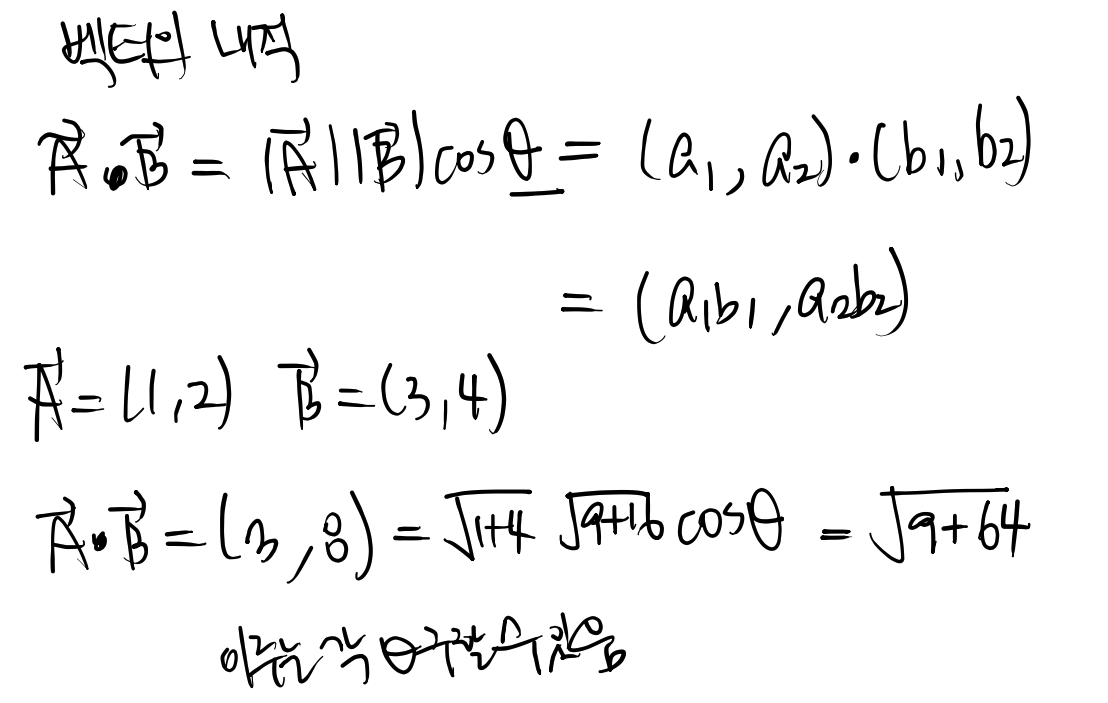 벡터의 내적
A⃗•B⃗ = |A⃗||B⃗|cosθ = (a₁, a₂)·(b₁, b₂)
= (a₁b₁, a₂b₂)
A⃗ = (1,2) B⃗ = (3,4)
A⃗•B⃗ = (3, 8) = √1+4 √9+16 cosθ = √9+64
이루는 각 θ 구할 수 있음